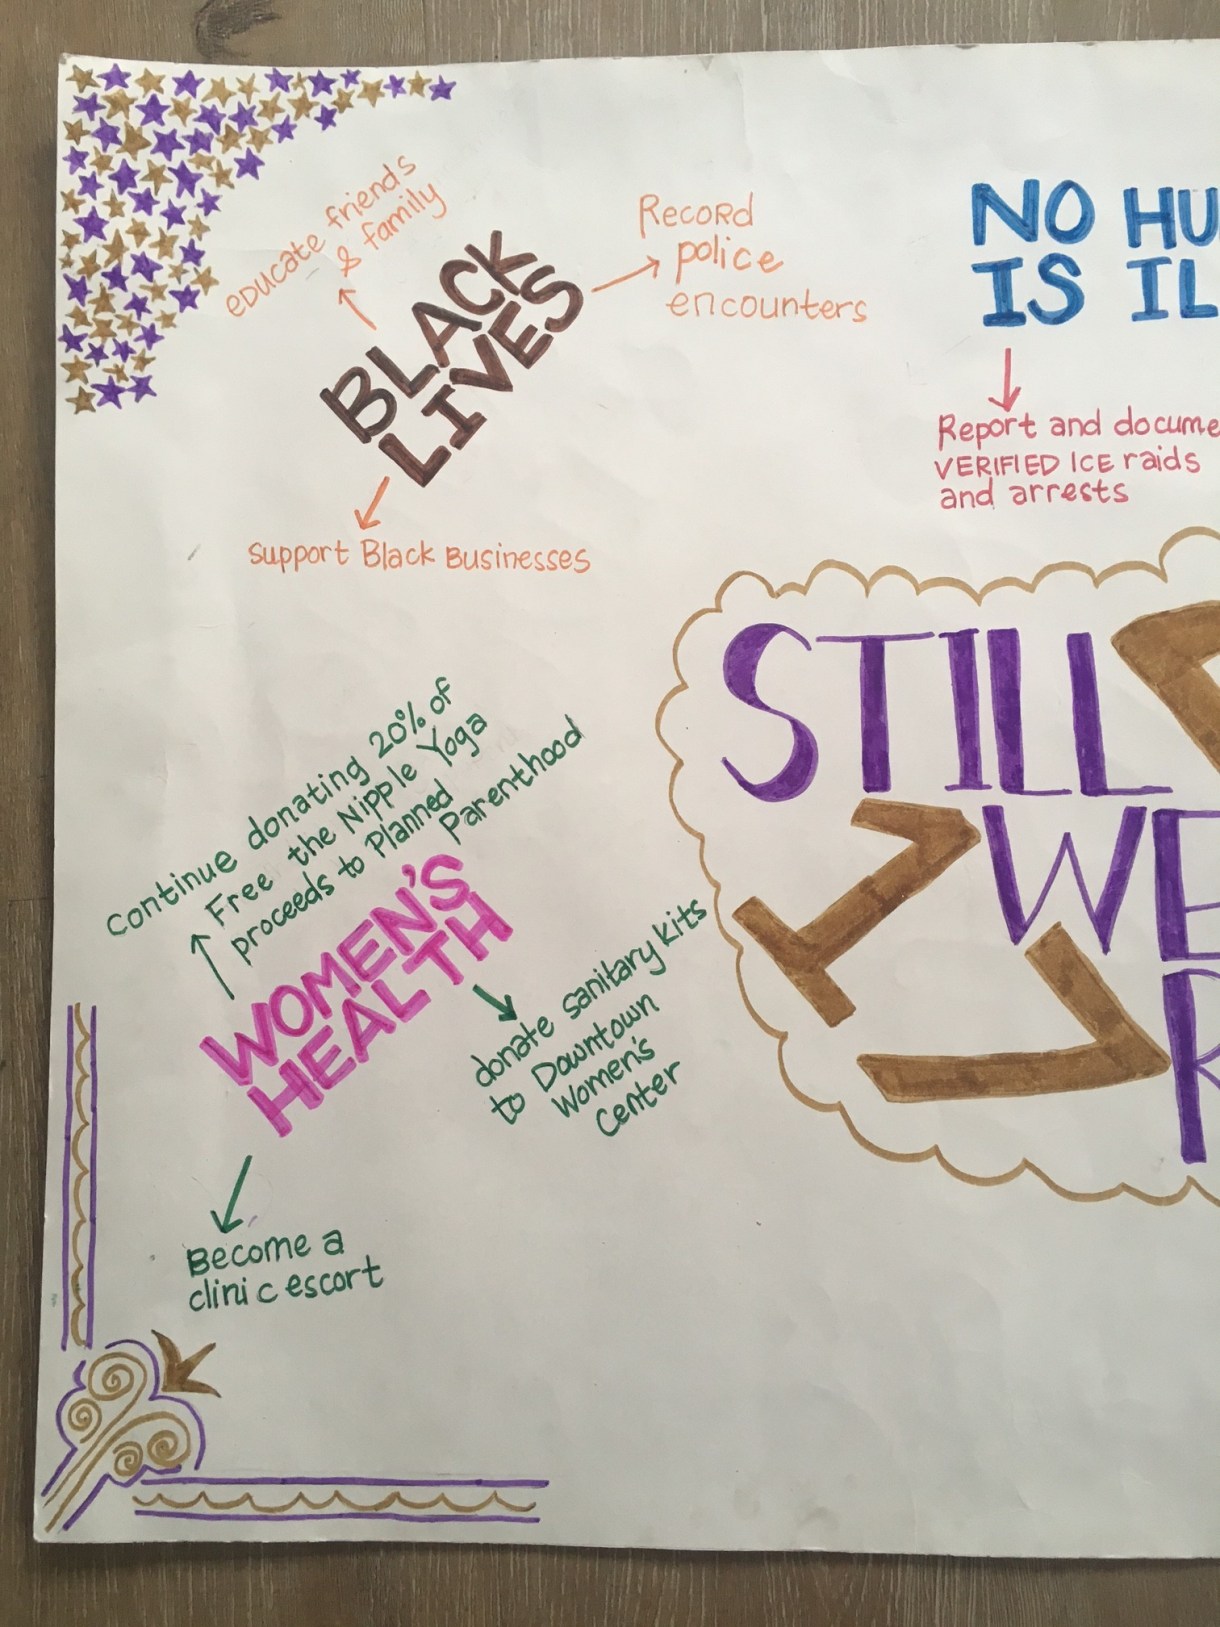 educate friends
& family
BLACK
LIVES
Record
police
encounters
Support Black Businesses
NO HU
IS IL
Report and docume
VERIFIED ICE raids
and arrests
STILL
WE
R
continue donating 20% of
Free the Nipple Yoga
proceeds to Planned
Parenthood
WOMEN'S
HEALTH
donate sanitary kits
to Downtown
Women's
Center
Become a
clinic escort